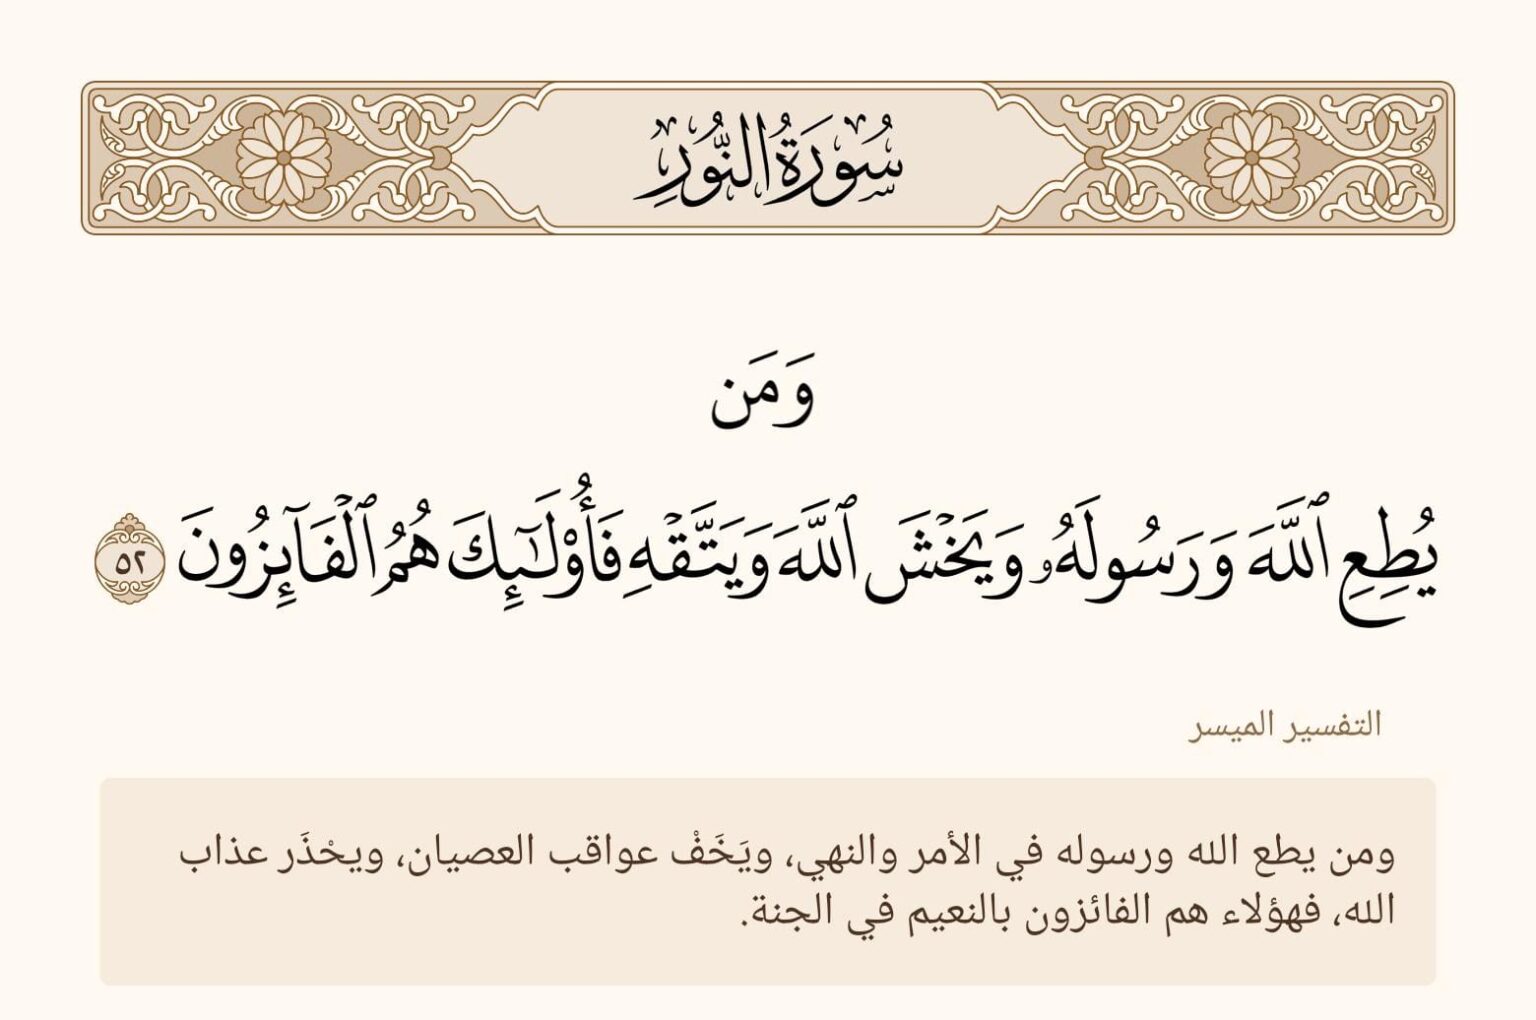 سُورَةُ النُّورِ
وَمَن
يُطِعِ ٱللَّهَ وَرَسُولَهُۥ وَيَخۡشَ ٱللَّهَ وَيَتَّقۡهِ فَأُوْلَٰٓئِكَ هُمُ ٱلۡفَآئِزُونَ ٥٢
التفسير الميسر
ومن يطع الله ورسوله في الأمر والنهي، ويَخَفْ عواقب العصيان، ويحْذَر عذاب
الله، فهؤلاء هم الفائزون بالنعيم في الجنة.